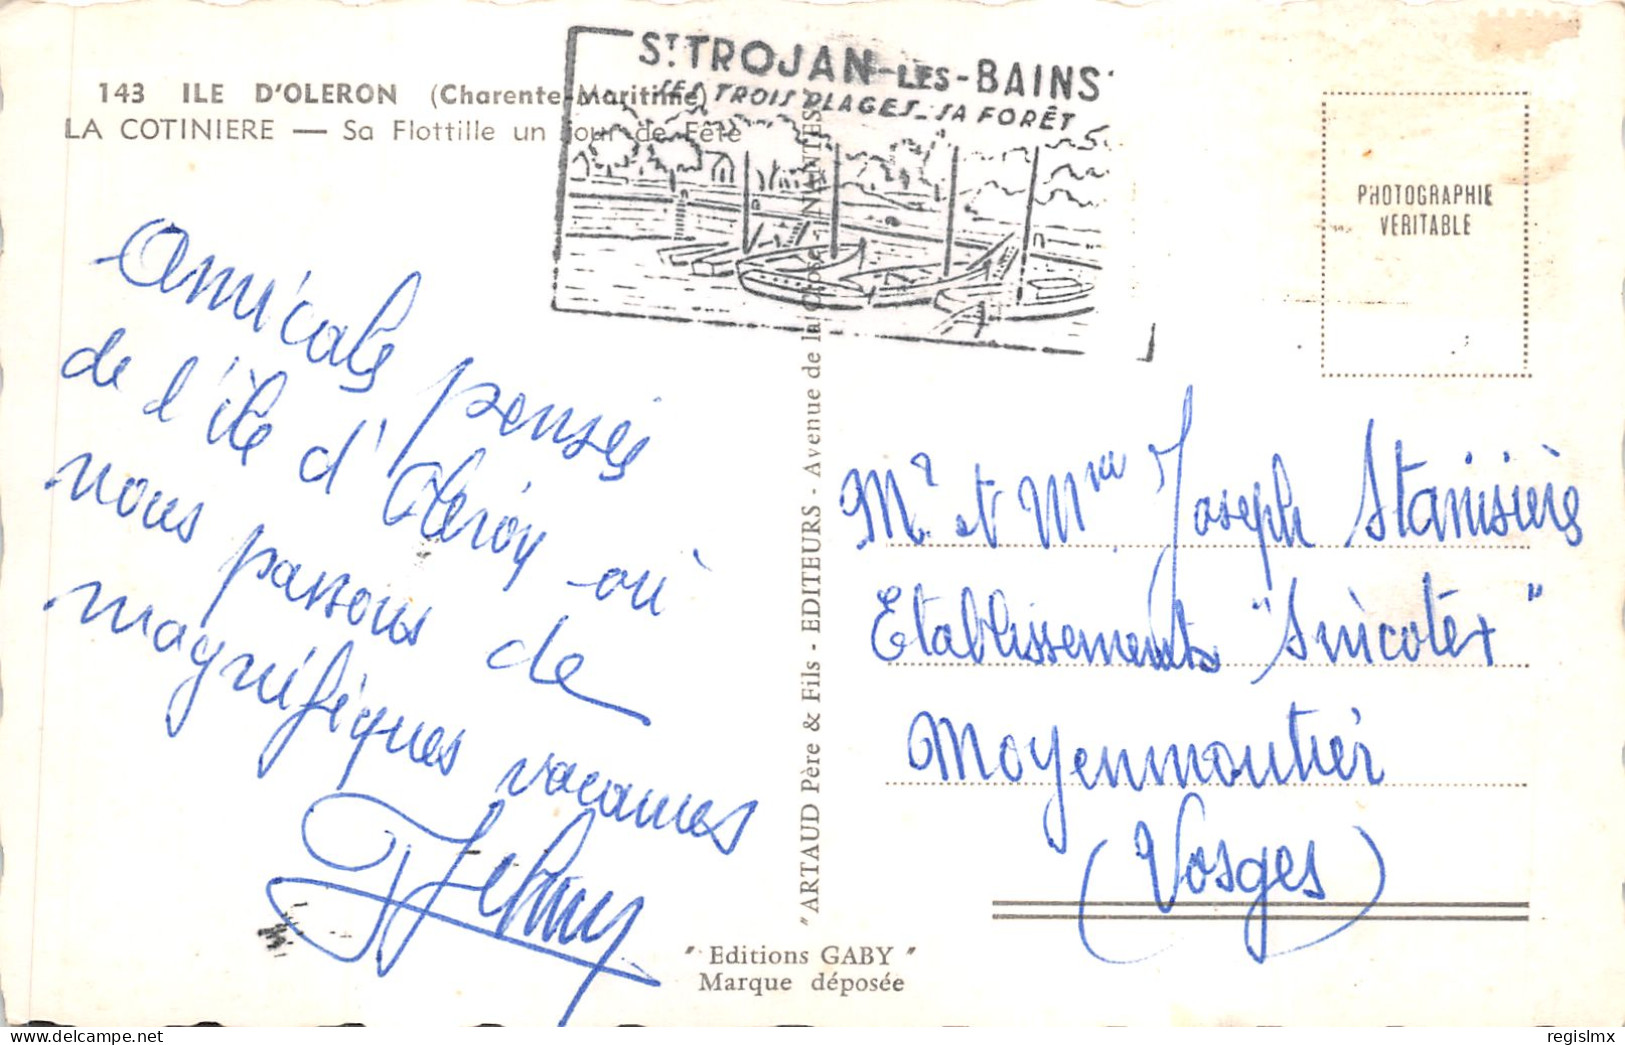 143 ILE D'OLERON (Charente-Maritime)
LA COTINIERE — Sa Flottille un jour de Fête
ST TROJAN-LES-BAINS
SES TROIS PLAGES - SA FORÊT
PHOTOGRAPHIE
VERITABLE
Amicales pensées
de l'île d'Oleron où
nous passons de
magnifiques vacances
"ARTAUD Père & Fils - EDITEURS - Avenue de la Close - NANTES
Mr et Mme Joseph Stanisière
Etablissements "Sinicotex"
Moyenmoutier
(Vosges)
"Editions GABY"
Marque déposée
delcampe.net
regislmx